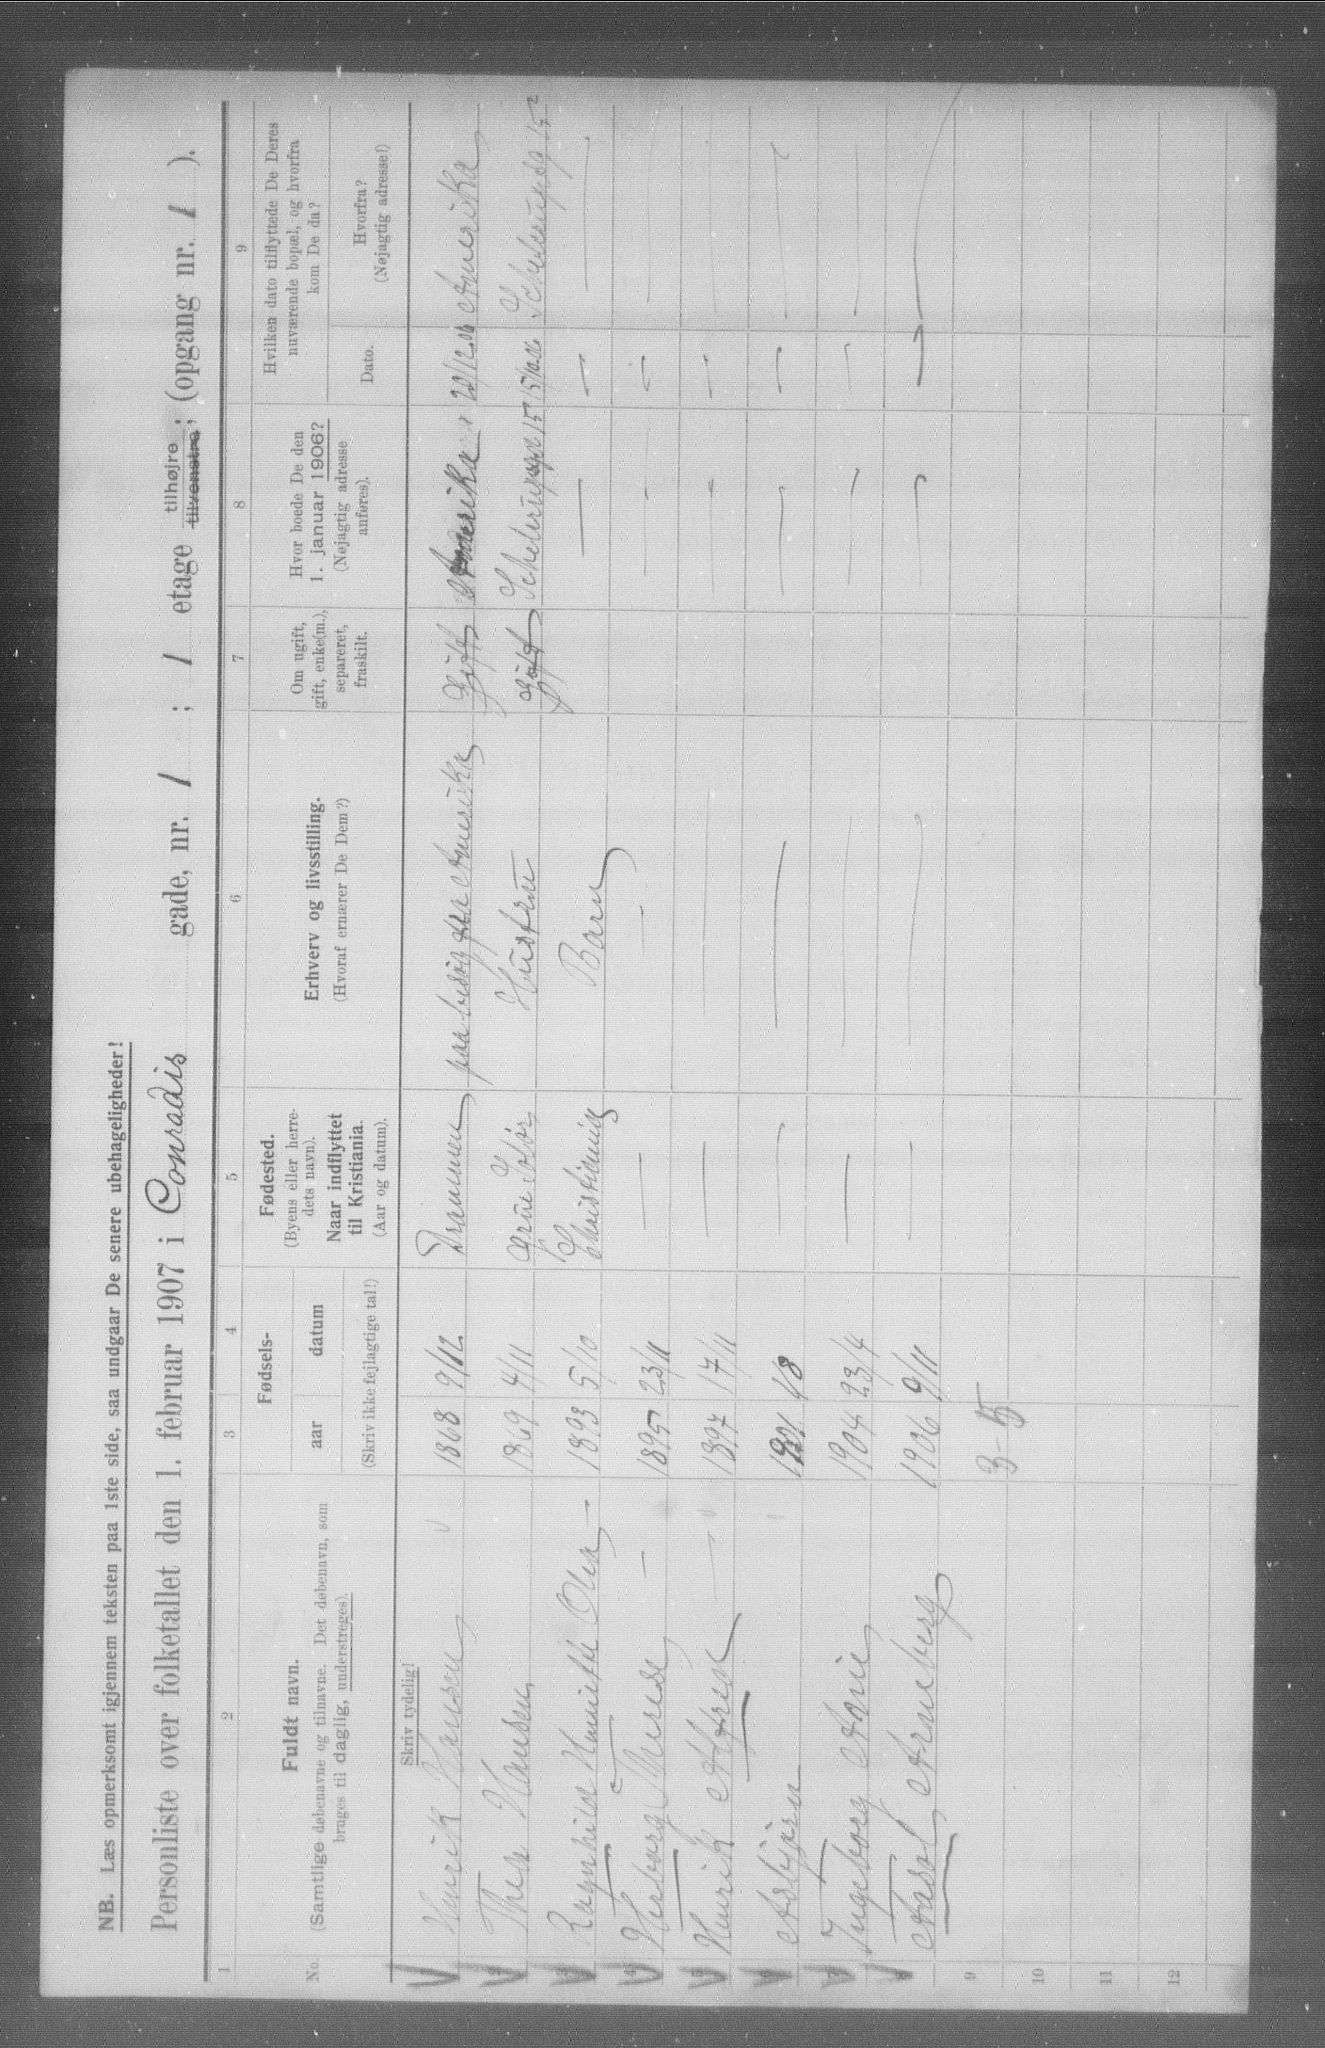 NB. Læs opmerksomt igjennem teksten paa 1ste side, saa undgaar De senere ubehageligheder!
Personliste over folketallet den 1. februar 1907 i Conradis gade, nr. 1 ; 1 etage tilhøjre tilvenstre; (opgang nr. 1 ).
1 2 3 4 5 6 7 8 9
No.
Fuldt navn.
(Samtlige døbenavne og tilnavne. Det døbenavn, som
bruges til daglig, understreges).
Fødsels-
aar datum
(Skriv ikke fejlagtige tal!)
Fødested.
(Byens eller herre-
dets navn).
Naar indflyttet
til Kristiania.
(Aar og datum).
Erhverv og livsstilling.
(Hvoraf ernærer De Dem?)
Om ugift,
gift, enke(m.),
separeret,
fraskilt.
Hvor boede De den
1. januar 1906?
(Nøjagtig adresse
anføres).
Hvilken dato tilflyttede De Deres
nuværende bopæl, og hvorfra
kom De da?
Dato.
Hvorfra?
(Nøjagtig adresse!)
Skriv tydelig!
Henrik Hansen 1868 9/12 Drammen paa besøg fra Amerika Gift Amerika 22/12.06 Amerika
2 Thea Hansen 1869 4/11 Grue Solør Hustru Gift 15 15/10.06 15
3 Ragnhild Olea — 1893 5/10 Christiania Barn — — —
4 Herborg — 1895 23/11 — — — — —
5 Henrik Alfred — 1897 17/11 — — — — —
6 Asbjørn 1901 4/8 — — — — —
7 Ingeborg Marie 1904 23/4 — — — — —
8 Aasol Arneberg 1906 9/11 — — — — —
9 3-5
10
11
12